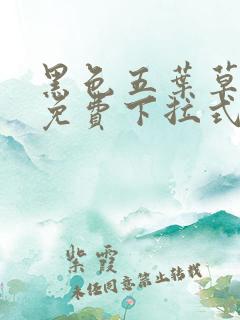 黑色五葉草
免費下拉式
紫霞
未经同意禁止转载